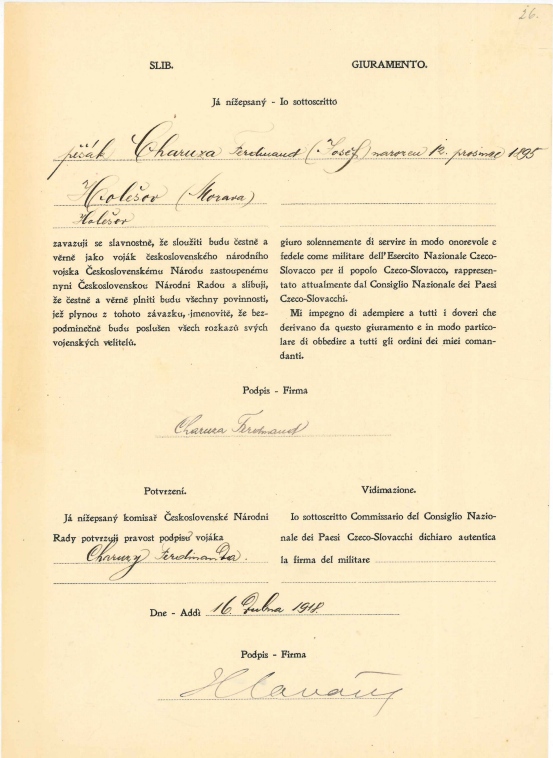 26.
SLIB.
GIURAMENTO.
Já nížepsaný - Io sottoscritto
pěšák Charuza Ferdinand (Josef) narozen 12. prosince 1895
Holešov (Morava)
Holešov
zavazuji se slavnostně, že sloužiti budu čestně a
věrně jako voják československého národního
vojska Československému Národu zastoupenému
nyni Československou Národní Radou a slibuji,
že čestně a věrně plniti budu všechny povinnosti,
jež plynou z tohoto závazku, jmenovitě, že bez-
podminečně budu poslušen všech rozkazů svých
vojenských velitelů.
giuro solennemente di servire in modo onorevole e
fedele come militare dell'Esercito Nazionale Czeco-
Slovacco per il popolo Czeco-Slovacco, rappresen-
tato attualmente dal Consiglio Nazionale dei Paesi
Czeco-Slovacchi.
Mi impegno di adempiere a tutti i doveri che
derivano da questo giuramento e in modo partico-
lare di obbedire a tutti gli ordini dei miei coman-
danti.
Podpis - Firma
Charuza Ferdinand
Potvrzení.
Já nížepsaný komisař Československé Národni
Rady potvrzuji pravost podpisu vojáka
Charuzy Ferdinanda.
Vidimazione.
Io sottoscritto Commissario del Consiglio Nazio-
nale dei Paesi Czeco-Slovacchi dichiaro autentica
la firma del militare
Dne - Addì 16. Dubna 1918.
Podpis - Firma